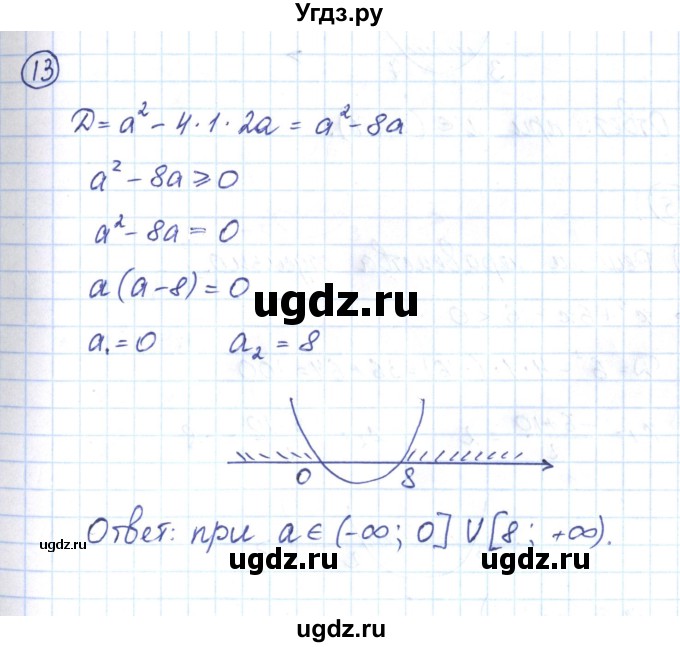 Угдз.ру
13
D = a² - 4·1·2a = a² - 8a
a² - 8a ≥ 0
a² - 8a = 0
a(a-8) = 0
ugdz.ru
a₁ = 0 a₂ = 8
0 8
Ответ: при a ∈ (-∞; 0] U [8; +∞).
ugdz.ru
ugdz.ru
ugdz.ru
ugdz.ru